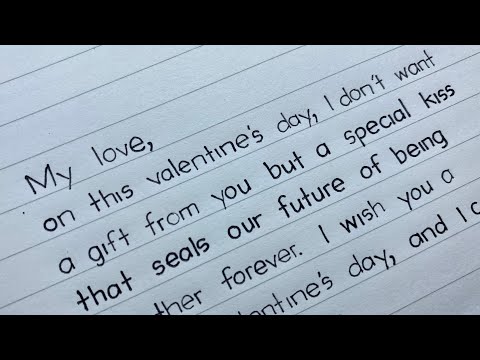 My love,
on this valentine's day, I don't want
a gift from you but a special kiss
that seals our future of being
ther forever. I wish you a
entine's day, and I